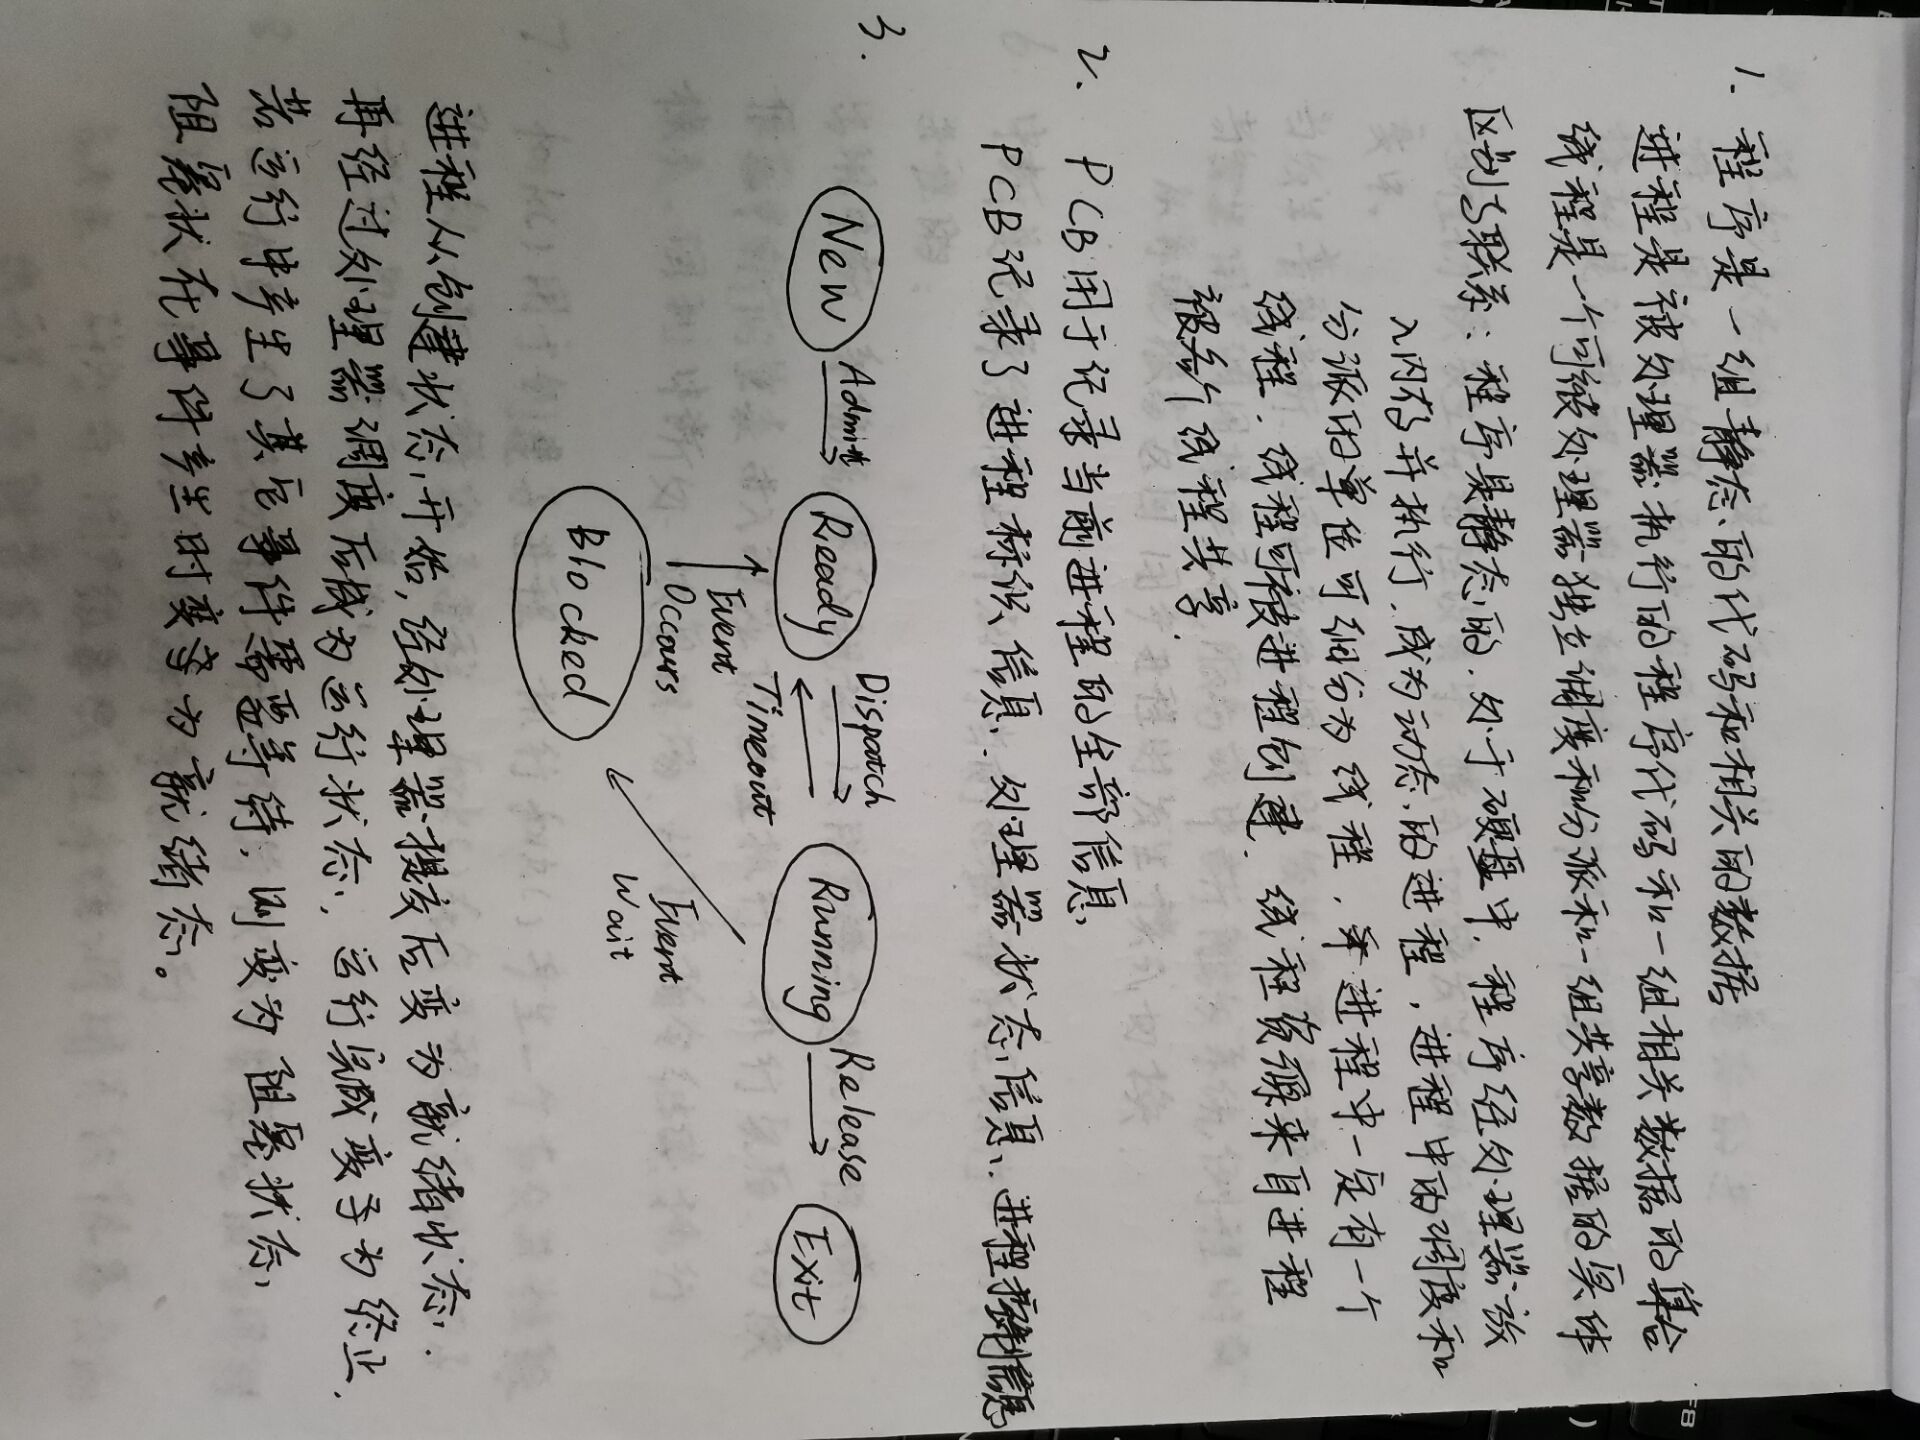 1. 程序是一组静态的代码和相关的数据
进程是被处理器执行的程序代码和一组相关数据的集合
线程是一个可被处理器独立调度和分派和一组共享数据的实体
区别与联系：程序是静态的，处于硬盘中，程序经处理器放
入内存并执行，成为动态的进程，进程中的调度和
分派的单位可细分为线程，进程中一定有一个
线程，线程可被进程创建，线程资源来自进程
被各个线程共享.
2. PCB用于记录当前进程的全部信息
PCB记录了进程标识信息、处理器状态信息、进程控制信息
3.
New Admit Ready Dispatch Running Release Exit
Timeout
Event
Occours
Event
Wait
Blocked
进程从创建状态开始，经处理器提交后变为就绪状态，
再经过处理器调度后成为运行状态，运行完成变为终止，
若运行中产生了其它事件需要等待，则变为阻塞状态，
阻塞状在事件产生时变为就绪态。